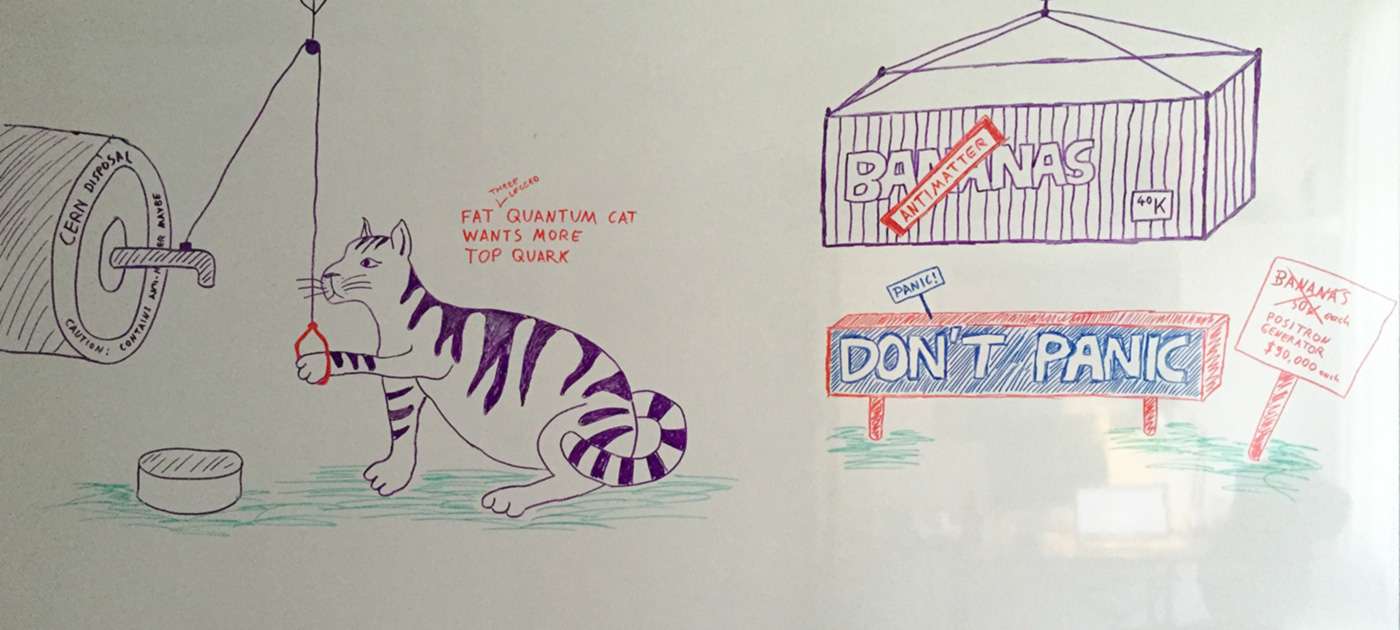 CERN DISPOSAL
CAUTION: CONTAINS ANTI-
ER MAYBE
THREE
LEGGED
FAT QUANTUM CAT
WANTS MORE
TOP QUARK
BANANAS
ANTIMATTER
40K
PANIC!
DON'T PANIC
BANANAS
each
POSITRON
GENERATOR
$90,000 each